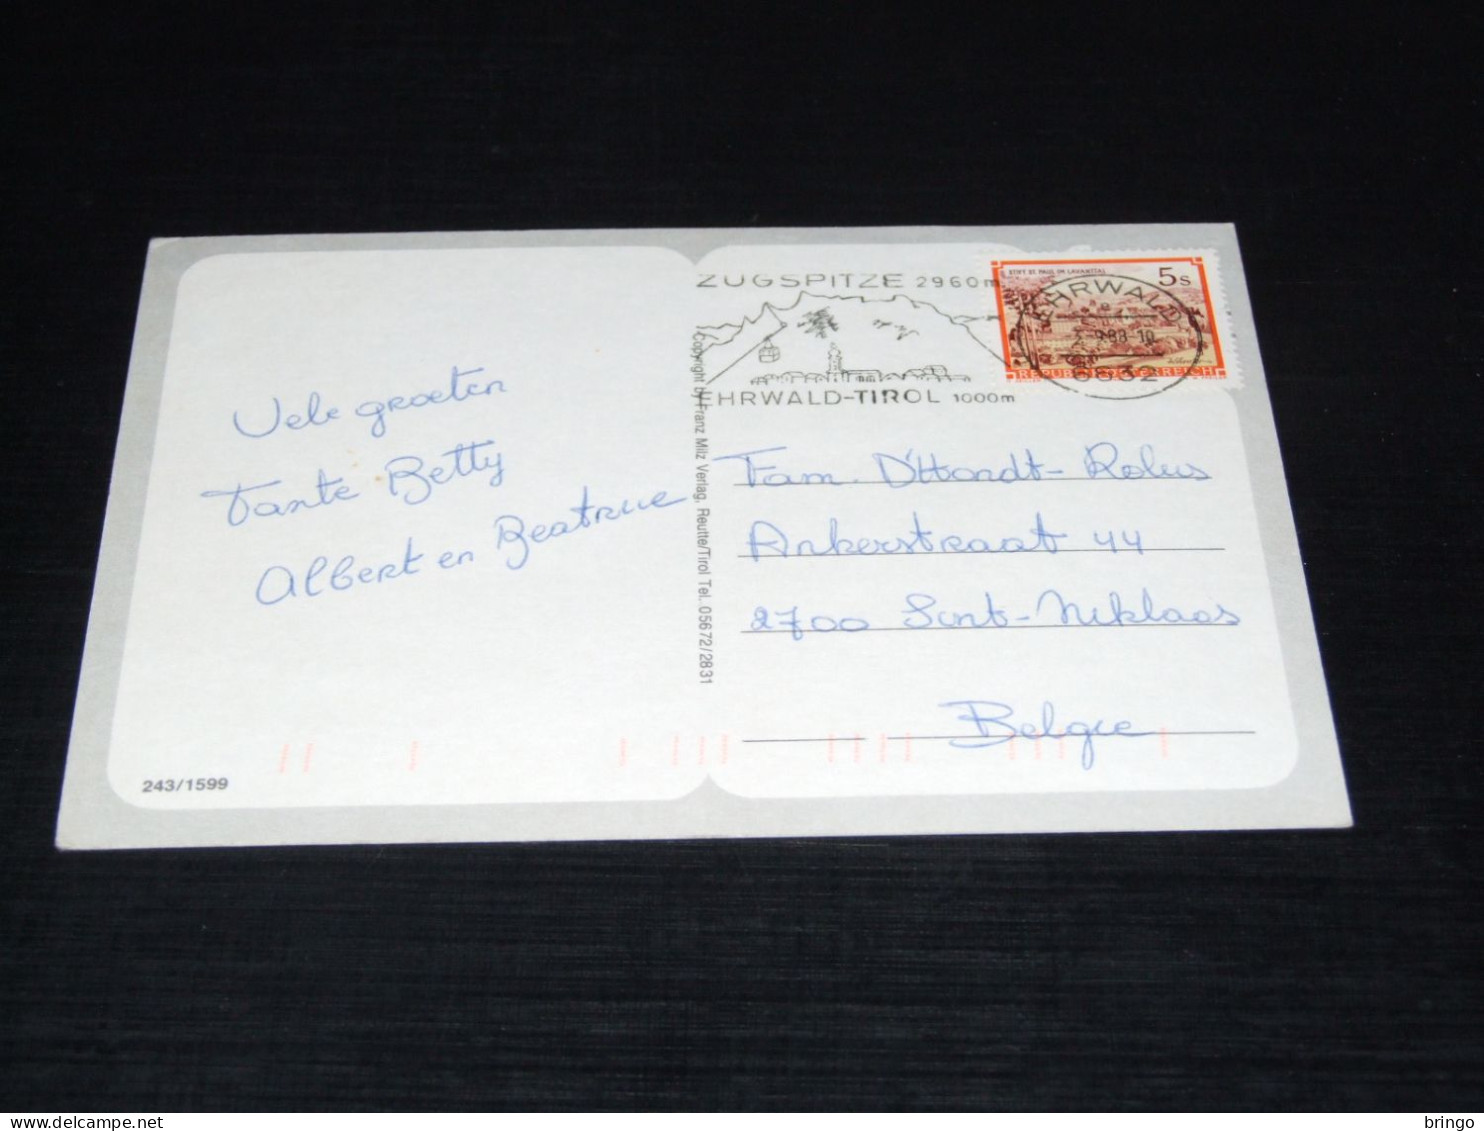 Vele groeten
Tante Betty
Albert en Beatrice
243/1599
Copyright by Franz Milz Verlag, Reutte/Tirol Tel. 05672/2831
ZUGSPITZE 2960m
EHRWALD-TIROL 1000m
STIFT ST. PAUL IM LAVANTTAL
5s
REPUBLIK ÖSTERREICH
EHRWALD
88-10
6632
Fam. D'Hondt-Rolus
Ankerstraat 44
2700 Sint-Niklaas
Belgie
bringo